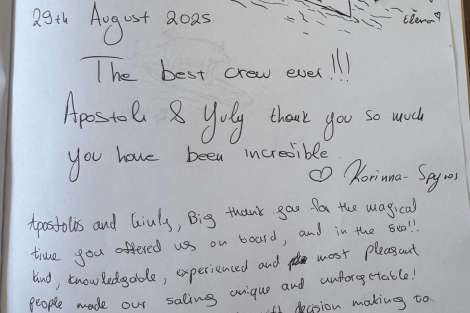 29th August 2025
Elena
The best crew ever!!!
Apostoli & Yuly thank you so much
you have been incredible
♡ Korinna - Spyros
Apostolis and Giuly, Big thank you for the magical
time you offered us on board, and in the sea!!
kind, knowledgable, experienced and most pleasant
people made our sailing unique and unforgetable!
decision making to